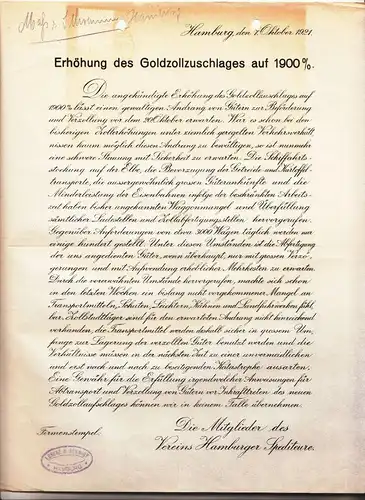 Hamburg, den 7. Oktober 1921.
Erhöhung des Goldzollzuschlages auf 1900 %.
Die angekündigte Erhöhung des Goldzollzuschlages auf
1900 % lässt einen gewaltigen Andrang von Gütern zur Beförderung
und Verzollung vor dem 20. Oktober erwarten. War es schon bei den
bisherigen Zollerhöhungen unter ziemlich geregelten Verkehrsverhält
nissen kaum möglich diesen Andrang zu bewältigen, so ist nunmehr
eine schwere Stauung mit Sicherheit zu erwarten. Die Schiffahrts-
stockung auf der Elbe, die Bevorzugung der Getreide- und Kartoffel-
transporte, die aussergewöhnlich grossen Güterankünfte und die
Minderleistung der Eisenbahnen infolge der beschränkten Arbeits-
zeit haben bisher ungekannten Waggonmangel und Überfüllung
sämtlicher Ladestellen und Zollabfertigungsstellen hervorgerufen.
Gegenüber Anforderungen von etwa 3000 Wagen täglich werden nur
einige hundert gestellt. Unter diesen Umständen ist die Abfertigung
der uns angedienten Güter, wenn überhaupt, nur mit grossen Verzö-
gerungen und mit Aufwendung erheblicher Mehrkosten zu erwarten.
Durch die vorerwähnten Umstände hervorgerufen, machte sich schon
in den letzten Wochen ein bislang nicht vorgekommener Mangel an
Transportmitteln, Schuten, Leichtern, Kähnen und Landfuhrwerken fühl-
bar. Zollstadtläger sind für den erwarteten Andrang nicht hinreichend
vorhanden, die Transportmittel werden deshalb sicher in grossem Um-
fange zur Lagerung der verzollten Güter benutzt werden und die
Verhältnisse müssen in der nächsten Zeit zu einer unvermeidlichen
und erst nach und nach zu beseitigenden Katastrophe ausarten.
Eine Gewähr für die Erfüllung irgendwelcher Anweisungen für
Abtransport und Verzollung von Gütern vor Inkrafttreten des neuen
Goldzollaufschlages können wir in keinem Falle übernehmen.
Firmenstempel:
Die Mitglieder des
Vereins Hamburger Spediteure.
HAMBURG